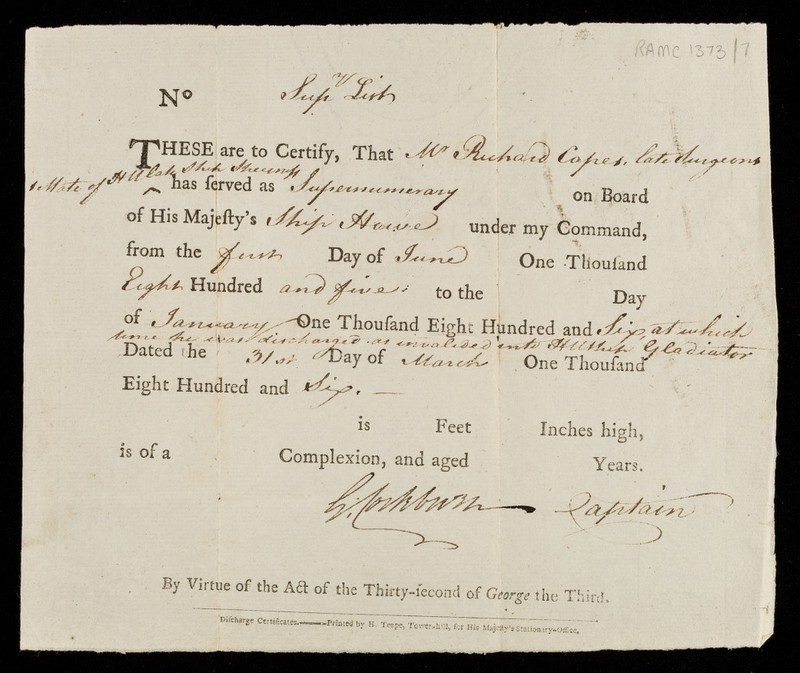 RAMC 1373/7
No Supy List
THESE are to Certify, That Mr Richard Copes, late Surgeons
Mate of HM late Ship
has ſerved as Supernumerary on Board
of His Majeſty's Ship Howe under my Command,
from the first Day of June One Thouſand
Eight Hundred and five: to the Day
of January One Thouſand Eight Hundred and Six, at which
time he was discharged as invalided into HM Ship Gladiator
Dated the 31st Day of March One Thouſand
Eight Hundred and Six. —
is Feet Inches high,
is of a Complexion, and aged Years.
G. Cockburn Captain
By Virtue of the Act of the Thirty-ſecond of George the Third.
Diſcharge Certificates.———Printed by H. Teape, Tower-hill, for His Majeſty's Stationary-Office.